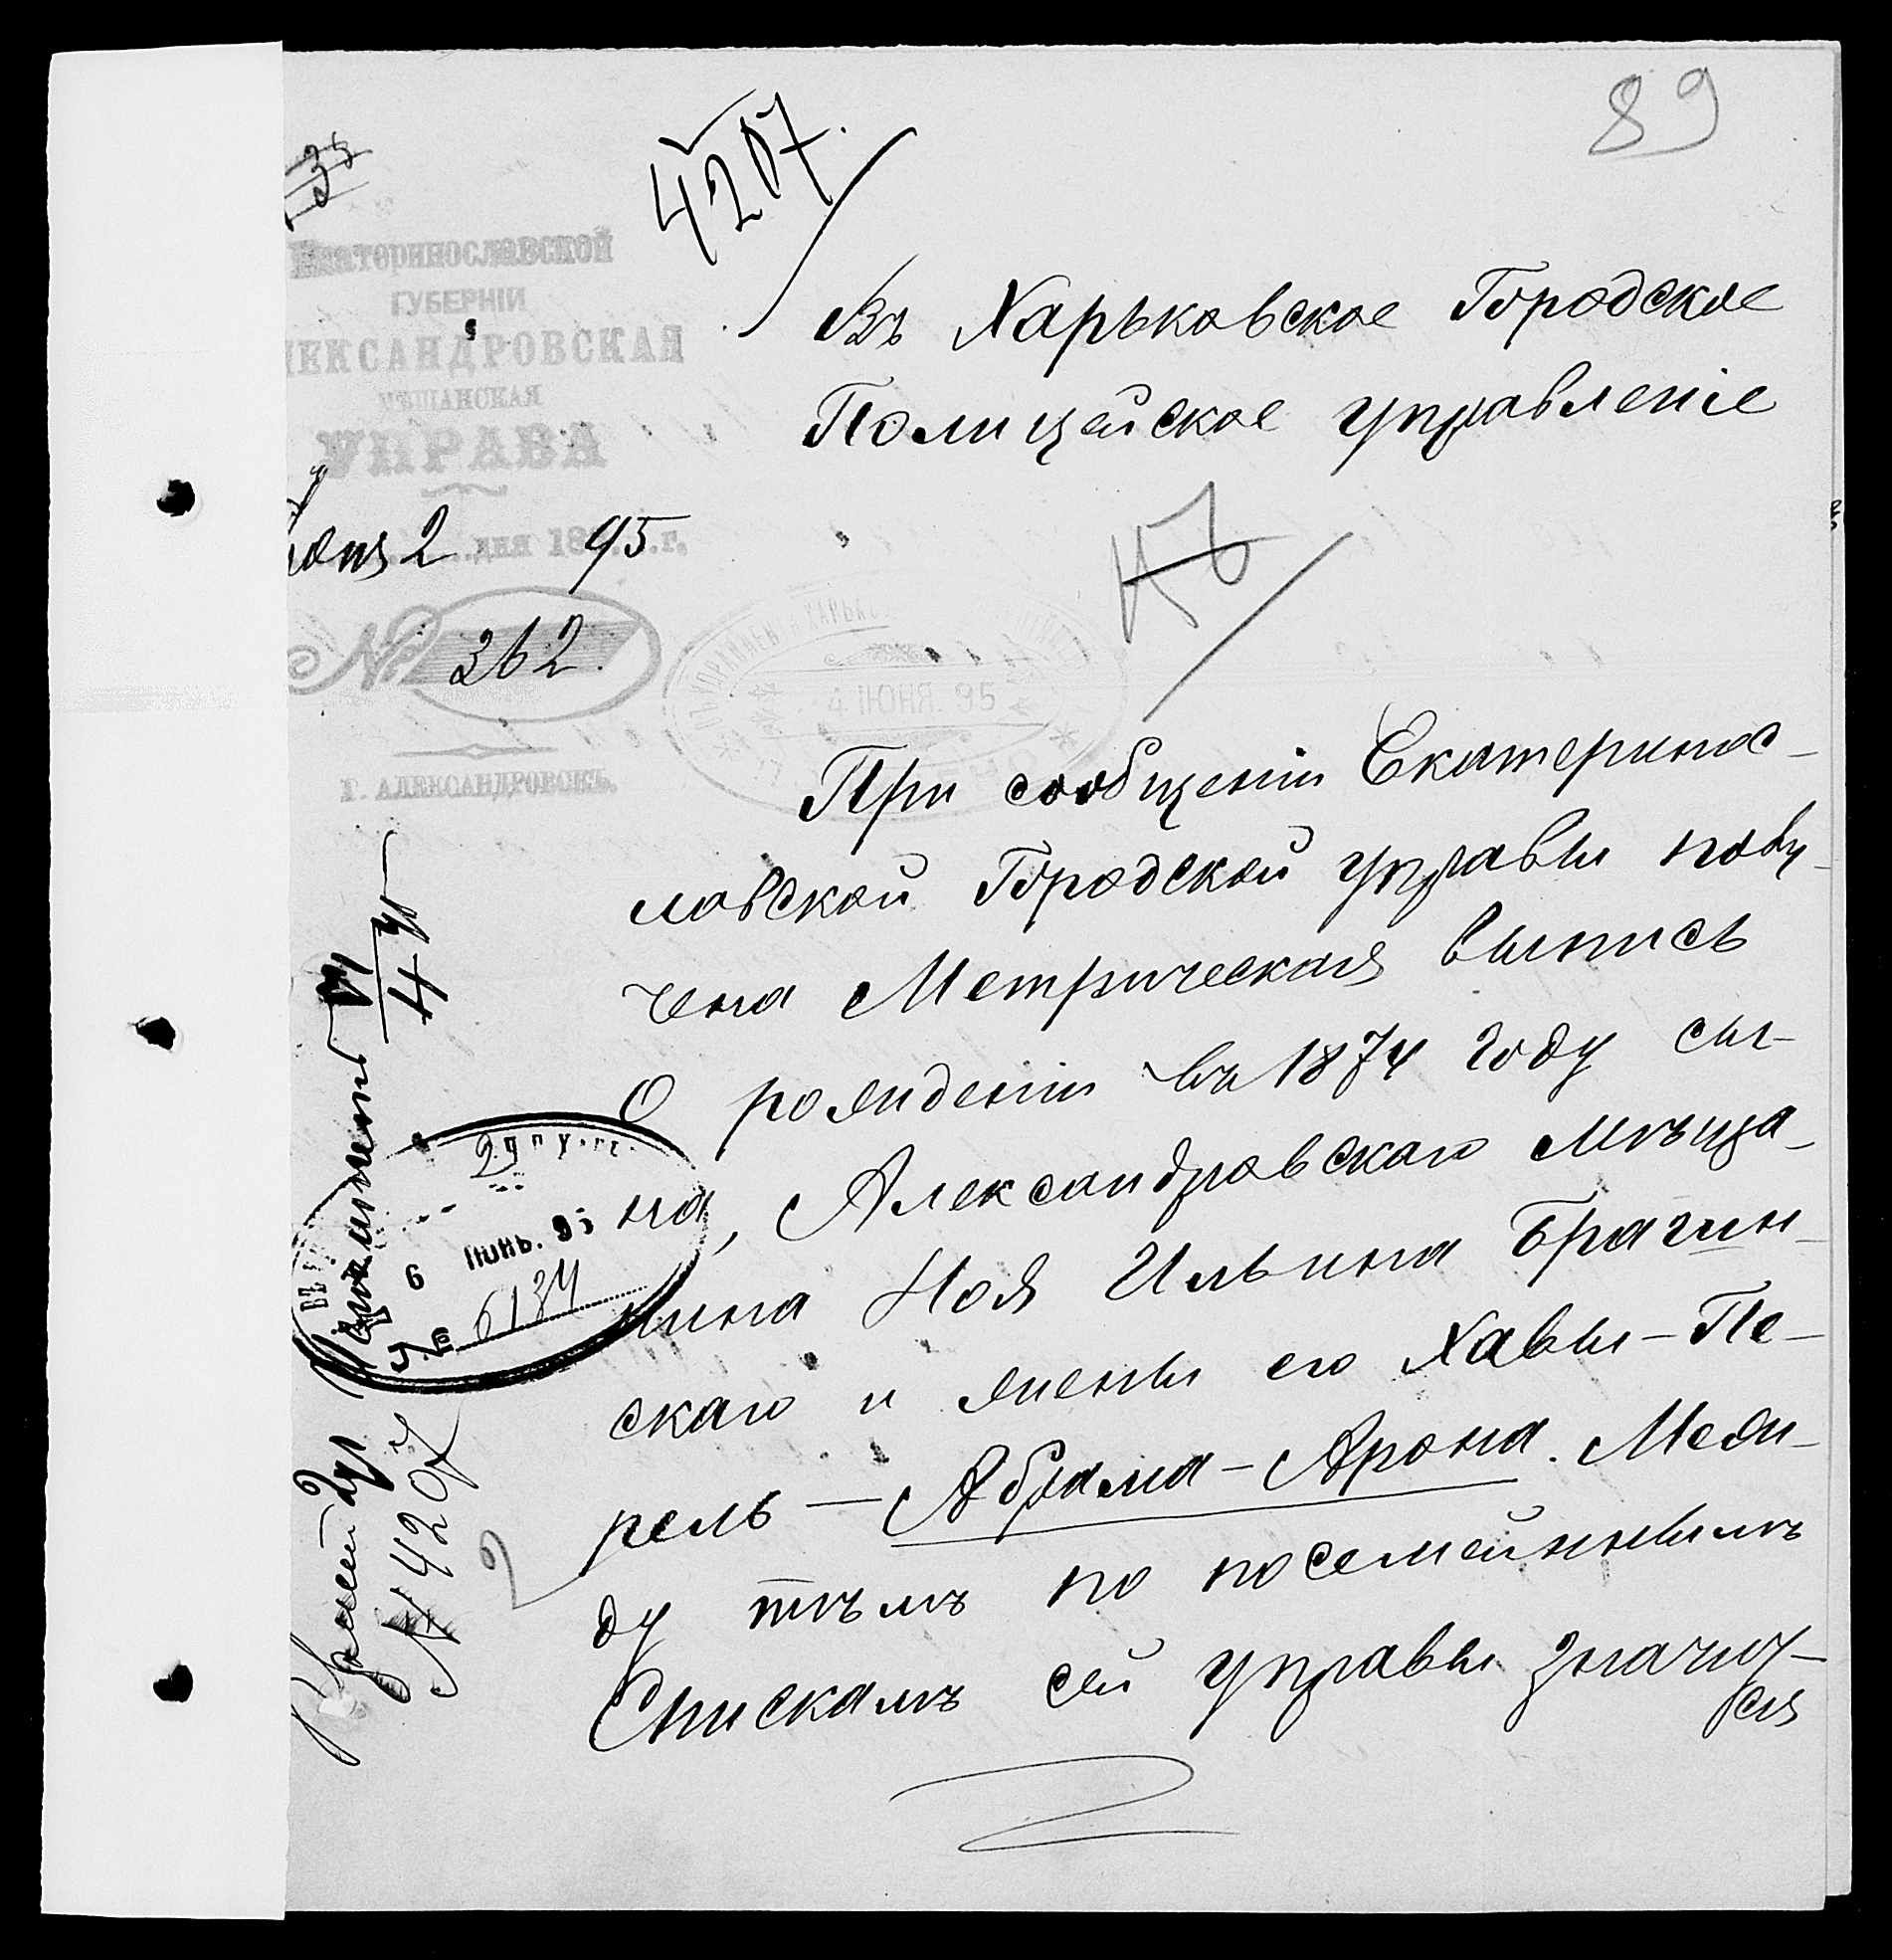 89
4207.
Екатеринославской
ГУБЕРНІИ
ЛЕКСАНДРОВСКАЯ
МѢЩАНСКАЯ
УПРАВА
юня 2 дня 1895 г.
№ 362
Г. АЛЕКСАНДРОВСКЪ.
Въ Харьковское Городское
Полицейское управленіе
4 ІЮНЯ. 95
При сообщеніи Екатеринос-
лавской Городской управы полу-
чена Метрическая выпись
о рожденіи въ 1874 году сы-
на, Александровскаго мѣща-
нина Ноя Ильина Брагин-
скаго и жены его Хавы-Пе-
рель — Абрама-Арона. Меж-
ду тѣмъ по посемейнымъ
Спискамъ сей управы значит-
ся
6 ІЮНЬ. 95
№ 6134
№ 4207